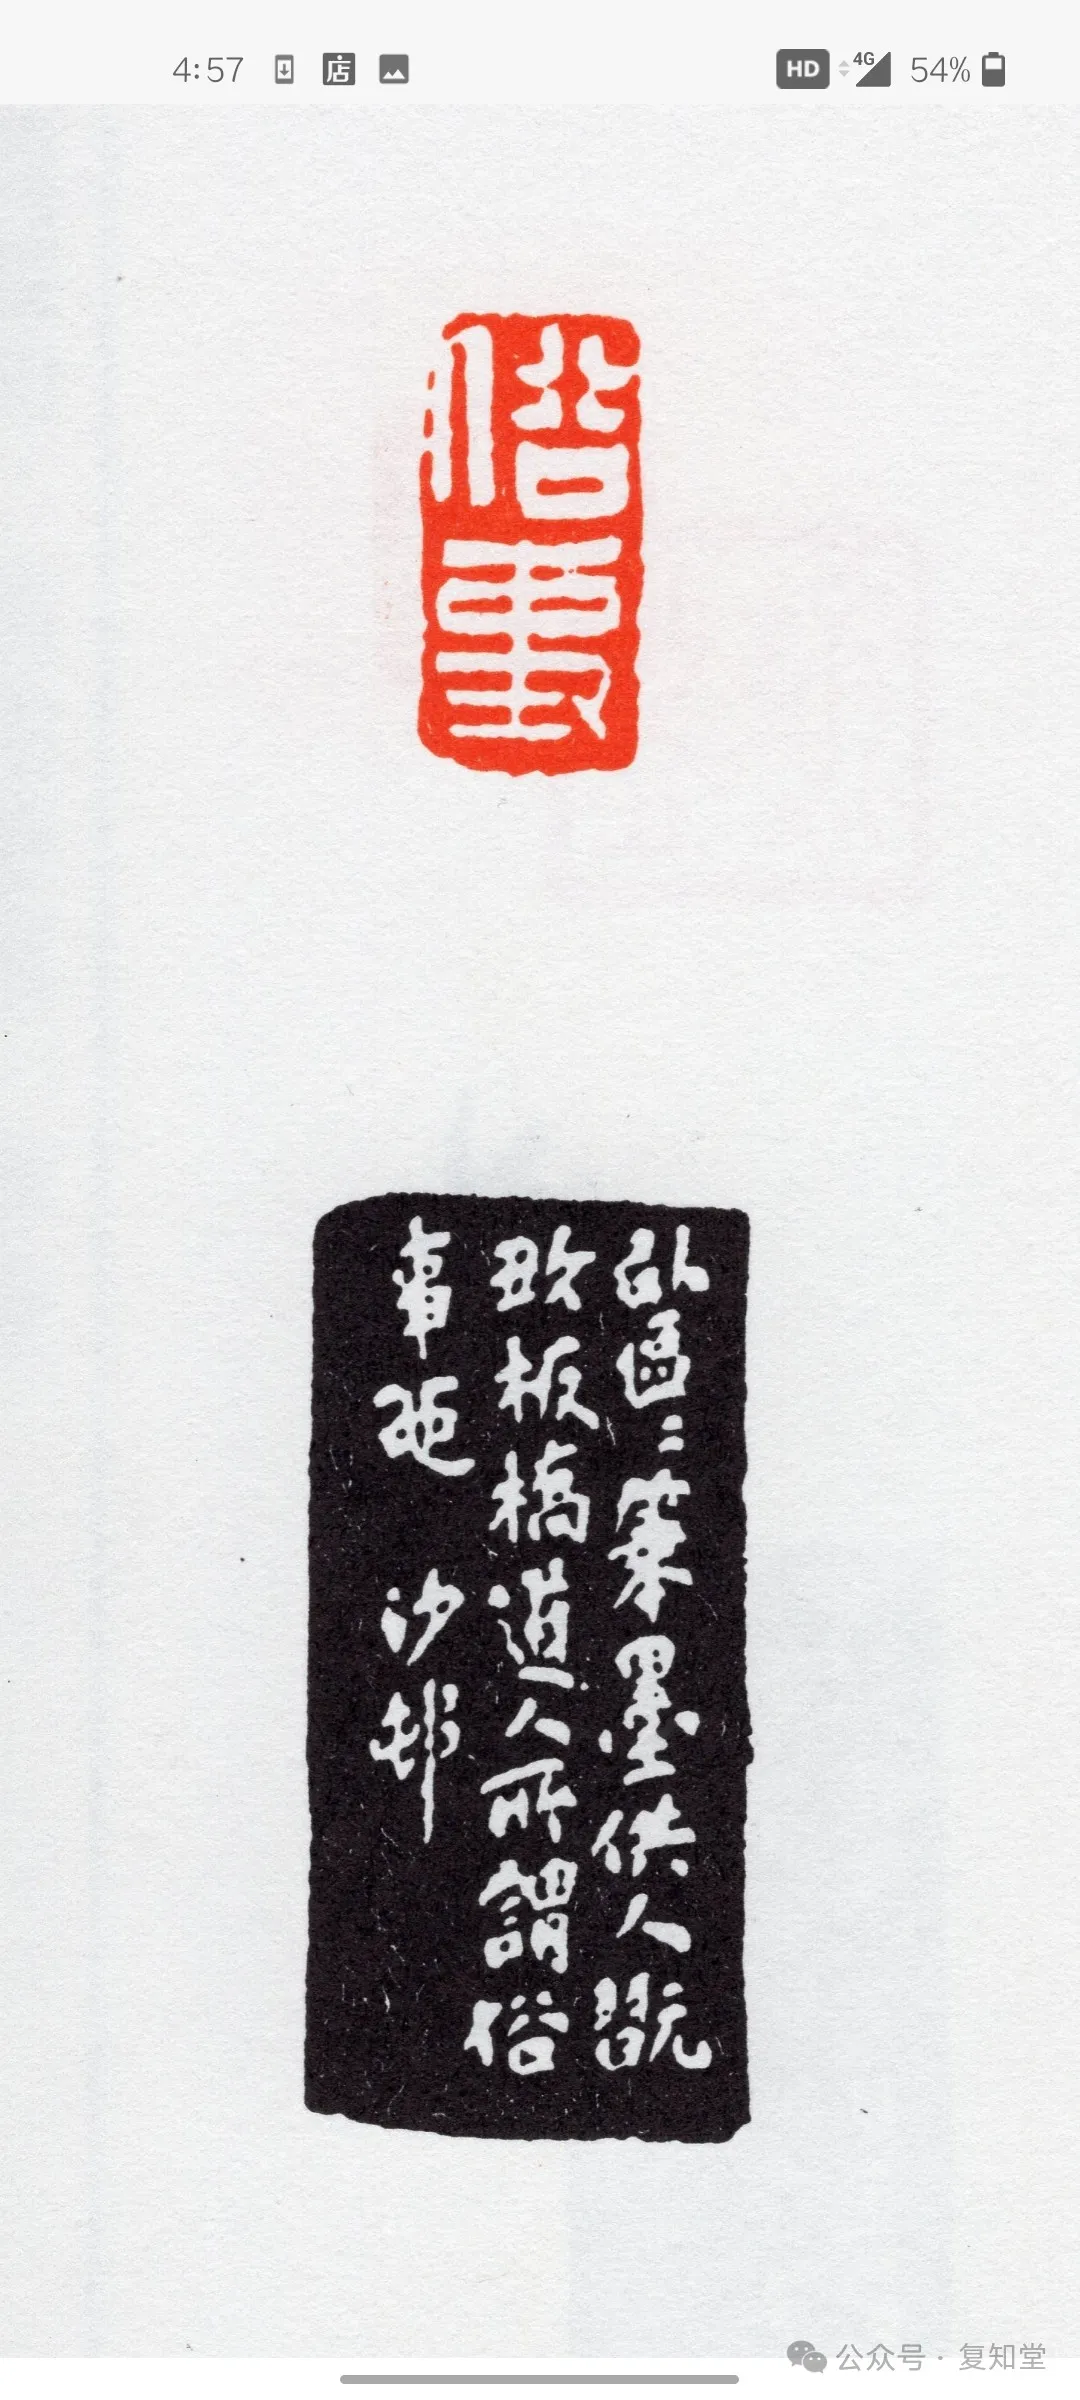 4:57 店 HD 4G 54%
俗事
以區〻筆墨供人既
敢板橋道人所謂俗
事也 沙邨
公众号 · 复知堂